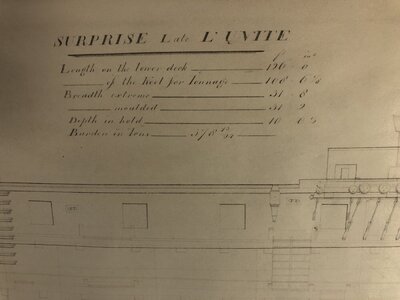 SURPRISE Late L'UNITE
ft ins
Length on the lower deck 126 0
of the Keel for Tonnage 108 6⅛
Breadth extreme 31 8
moulded 31 2
Depth in hold 10 0½
Burden in Tons 578 73/94